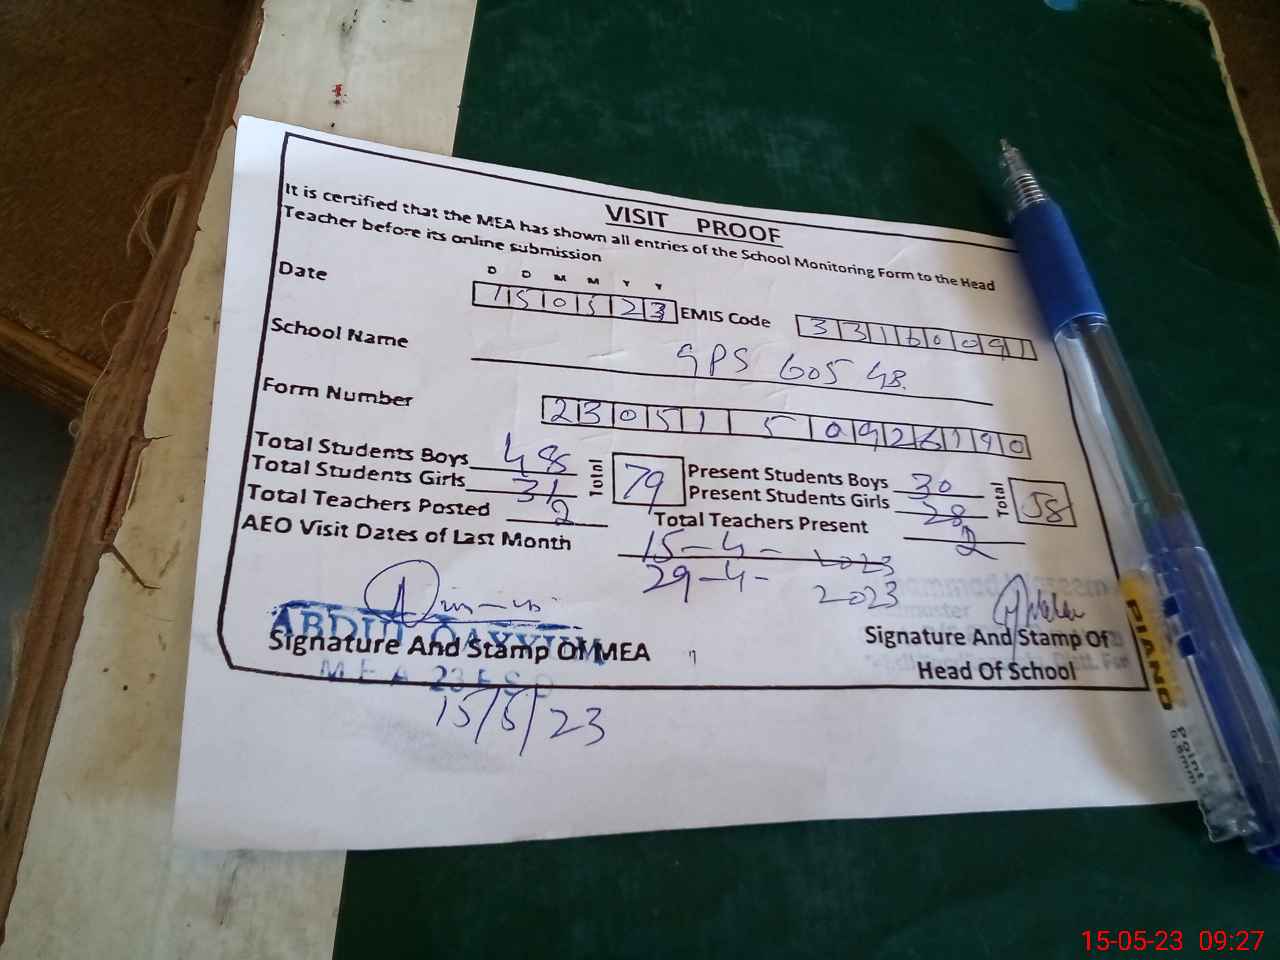 VISIT PROOF
It is certified that the MEA has shown all entries of the School Monitoring Form to the Head
Teacher before its online submission
D D M M Y Y
Date 150523 EMIS Code 33160091
School Name GPS 605 48.
Form Number 2305150926190
Total Students Boys 48 Total 79 Present Students Boys 30 Total 58
Total Students Girls 31 Present Students Girls 28
Total Teachers Posted 2 Total Teachers Present 2
AEO Visit Dates of Last Month 15-4-2023
29-4-2023
ABDUL QAYYUM
Signature And Stamp Of MEA
Signature And Stamp Of
Head Of School
MEA 23
15/5/23
PIANO
Point
0.8mm
15-05-23 09:27